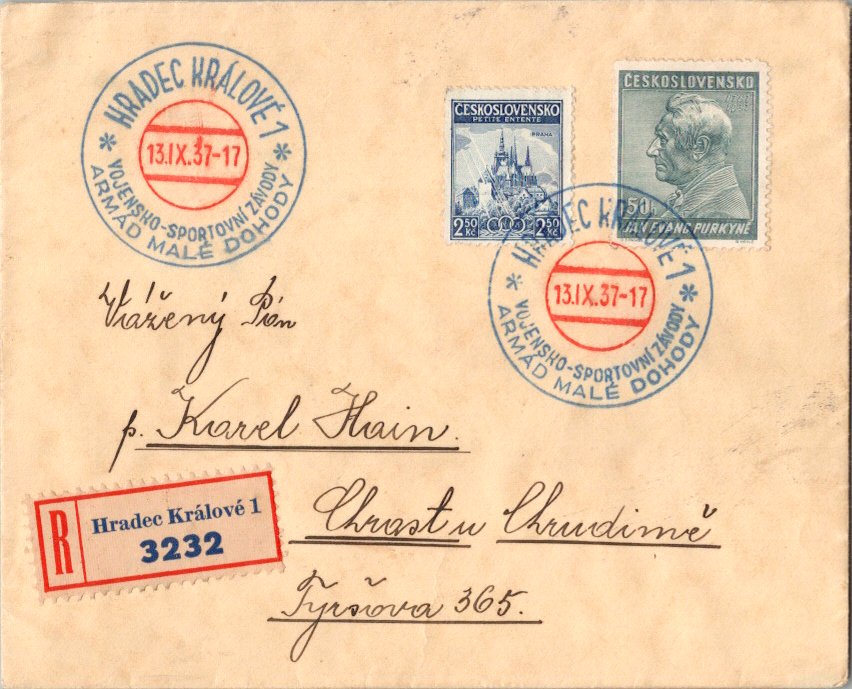 HRADEC KRÁLOVÉ 1
13.IX.37-17
VOJENSKO-SPORTOVNÍ ZÁVODY
ARMÁD MALÉ DOHODY
ČESKOSLOVENSKO
PETITE ENTENTE
PRAHA
2.50 Kč 2.50 Kč
ČESKOSLOVENSKO
50
JAN EVANG. PURKYNĚ
HRADEC KRÁLOVÉ 1
13.IX.37-17
VOJENSKO-SPORTOVNÍ ZÁVODY
ARMÁD MALÉ DOHODY
Vážený Pán
p. Karel Hain.
R Hradec Králové 1
3232
Chrast u Chrudimě
Tyršova 365.